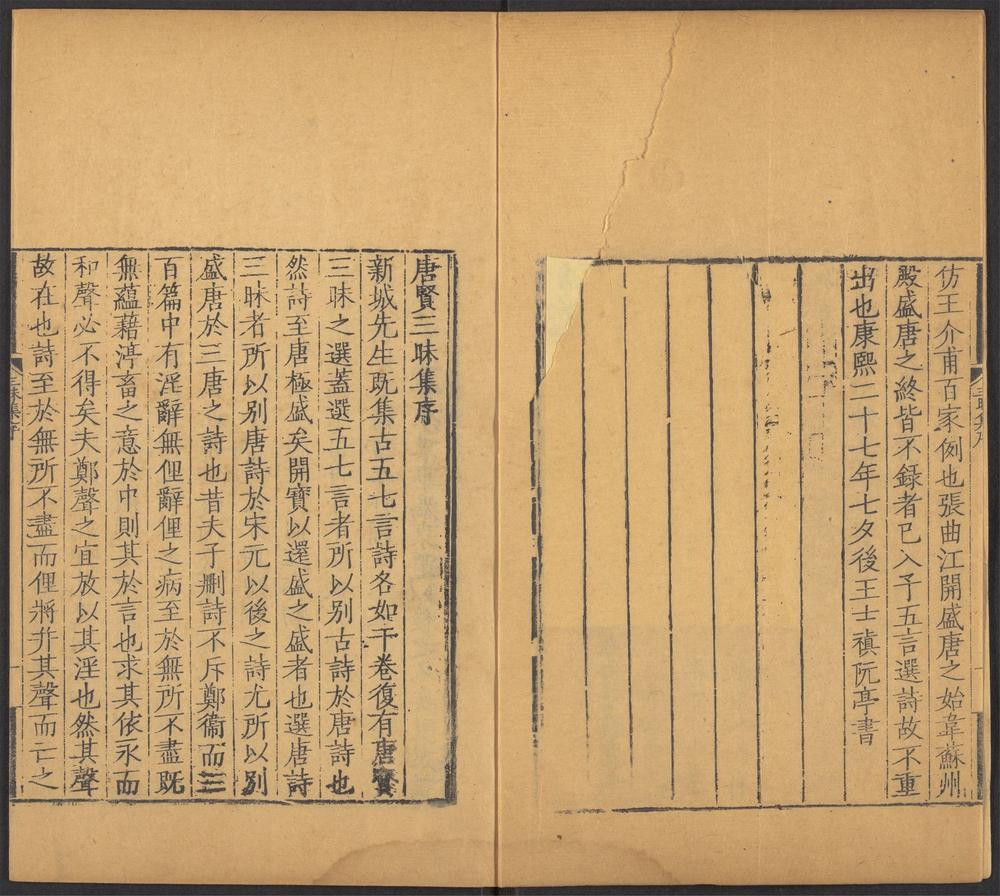 仿王介甫百家例也張曲江開盛唐之始韋蘇州
殿盛唐之終皆不録者已入予五言選詩故不重
出也康熙二十七年七夕後王士禛阮亭書
唐賢三昧集序
新城先生既集古五七言詩各如干卷復有唐賢
三昧之選蓋選五七言者所以別古詩於唐詩也
然詩至唐極盛矣開寶以還盛之盛者也選唐詩
三昧者所以別唐詩於宋元以後之詩尤所以別
盛唐於三唐之詩也昔夫子刪詩不斥鄭衞而三
百篇中有淫辭無俚辭俚之病至於無所不盡既
無蘊藉渟畜之意於中則其於言也求其依永而
和聲必不得矣夫鄭聲之宜放以其淫也然其聲
故在也詩至於無所不盡而俚將并其聲而亡之
三昧集序